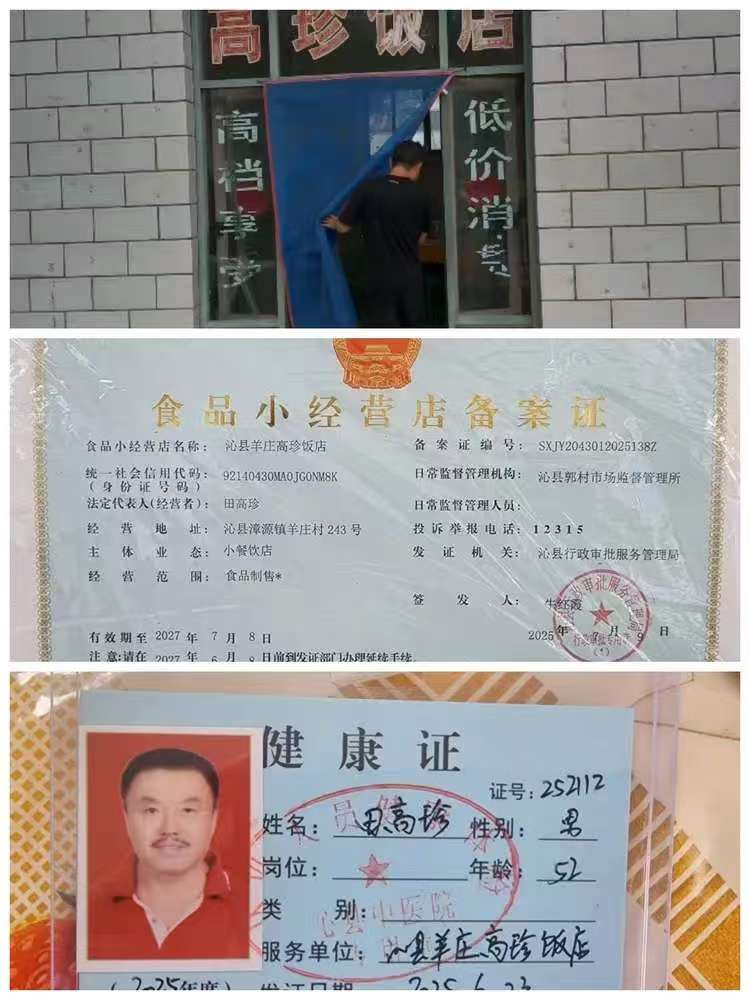 高珍饭店
高档享受
低价消费
食品小经营店备案证
食品小经营店名称： 沁县羊庄高珍饭店
备案证编号： SXJY2043012025138Z
统一社会信用代码：
（身份证号码） 92140430MA0JGONM8K
日常监督管理机构： 沁县郭村市场监督管理所
法定代表人(经营者)： 田高珍
日常监督管理人员：
经营地址： 沁县漳源镇羊庄村 243 号
投诉举报电话： 12315
主体业态： 小餐饮店
发证机关： 沁县行政审批服务管理局
经营范围： 食品制售*
签发人： 牛红霞
有效期至 2027 年 7 月 8 日
2025年 7 月 9 日
注意:请在 2027 年 6 月 8 日前到发证部门办理延续手续。
行政审批专用章
(1)
健康证
证号：252112
姓名： 田高珍 性别： 男
岗位： 年龄： 52
类别：
沁县中医院
服务单位： 沁县羊庄高珍饭店
（2025年度） 发证日期 2025.6.23